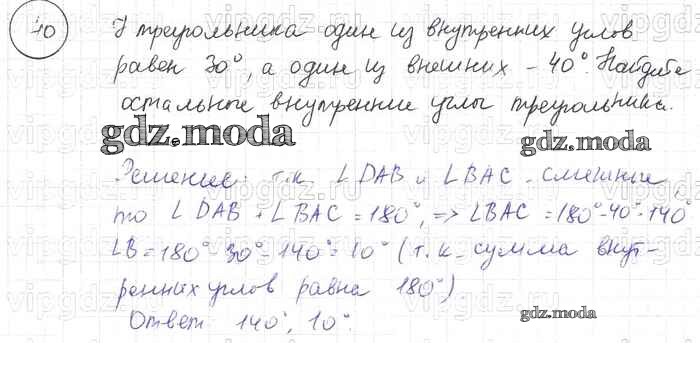 40 У треугольника один из внутренних углов
равен 30°, а один из внешних - 40°. Найдите
остальные внутренние углы треугольника.
gdz.moda
gdz.moda
Решение: т.к. ∠DAB и ∠BAC - смежные
то ∠DAB + ∠BAC = 180°, => ∠BAC = 180°-40°=140°
∠B = 180°-30°-140°= 10° (т.к. сумма внут-
ренних углов равна 180°)
Ответ: 140°, 10°.
gdz.moda
vipgdz.ru